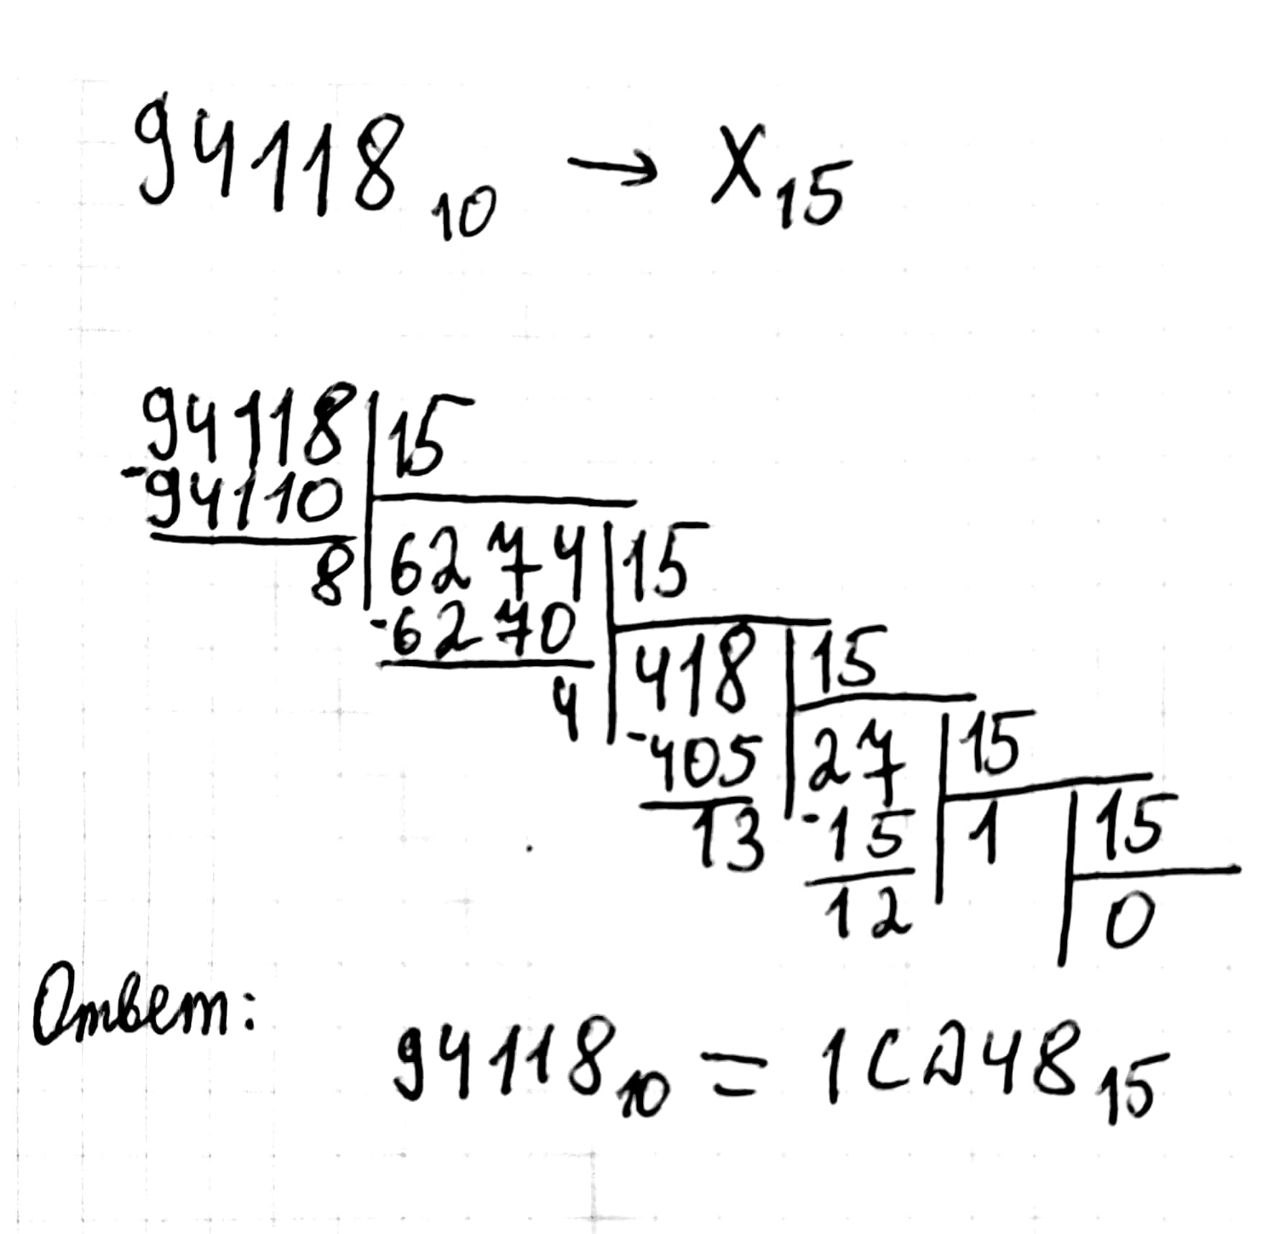 94118₁₀ → X₁₅
94118 | 15
-94110
8 | 6274 | 15
-6270
4 | 418 | 15
-405
13 | 27 | 15
-15
12 | 1 | 15
0
Ответ:
94118₁₀ = 1CD48₁₅